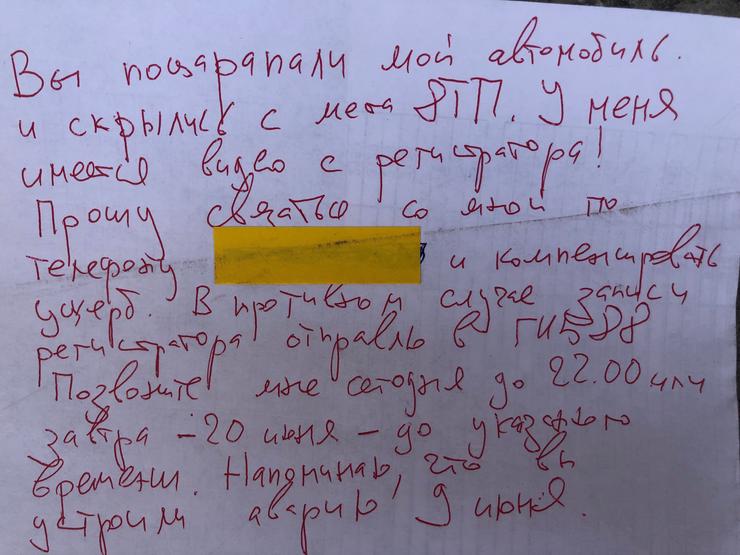 Вы поцарапали мой автомобиль.
и скрылись с места ДТП. У меня
имеется видео с регистратора!
Прошу связаться со мной по
телефону и компенсировать
ущерб. В противном случае записи
регистратора отправлю в ГИБДД
Позвоните мне сегодня до 22.00 или
завтра - 20 июня - до указаного
времени. Напоминаю, что вы
устроили аварию 9 июня.